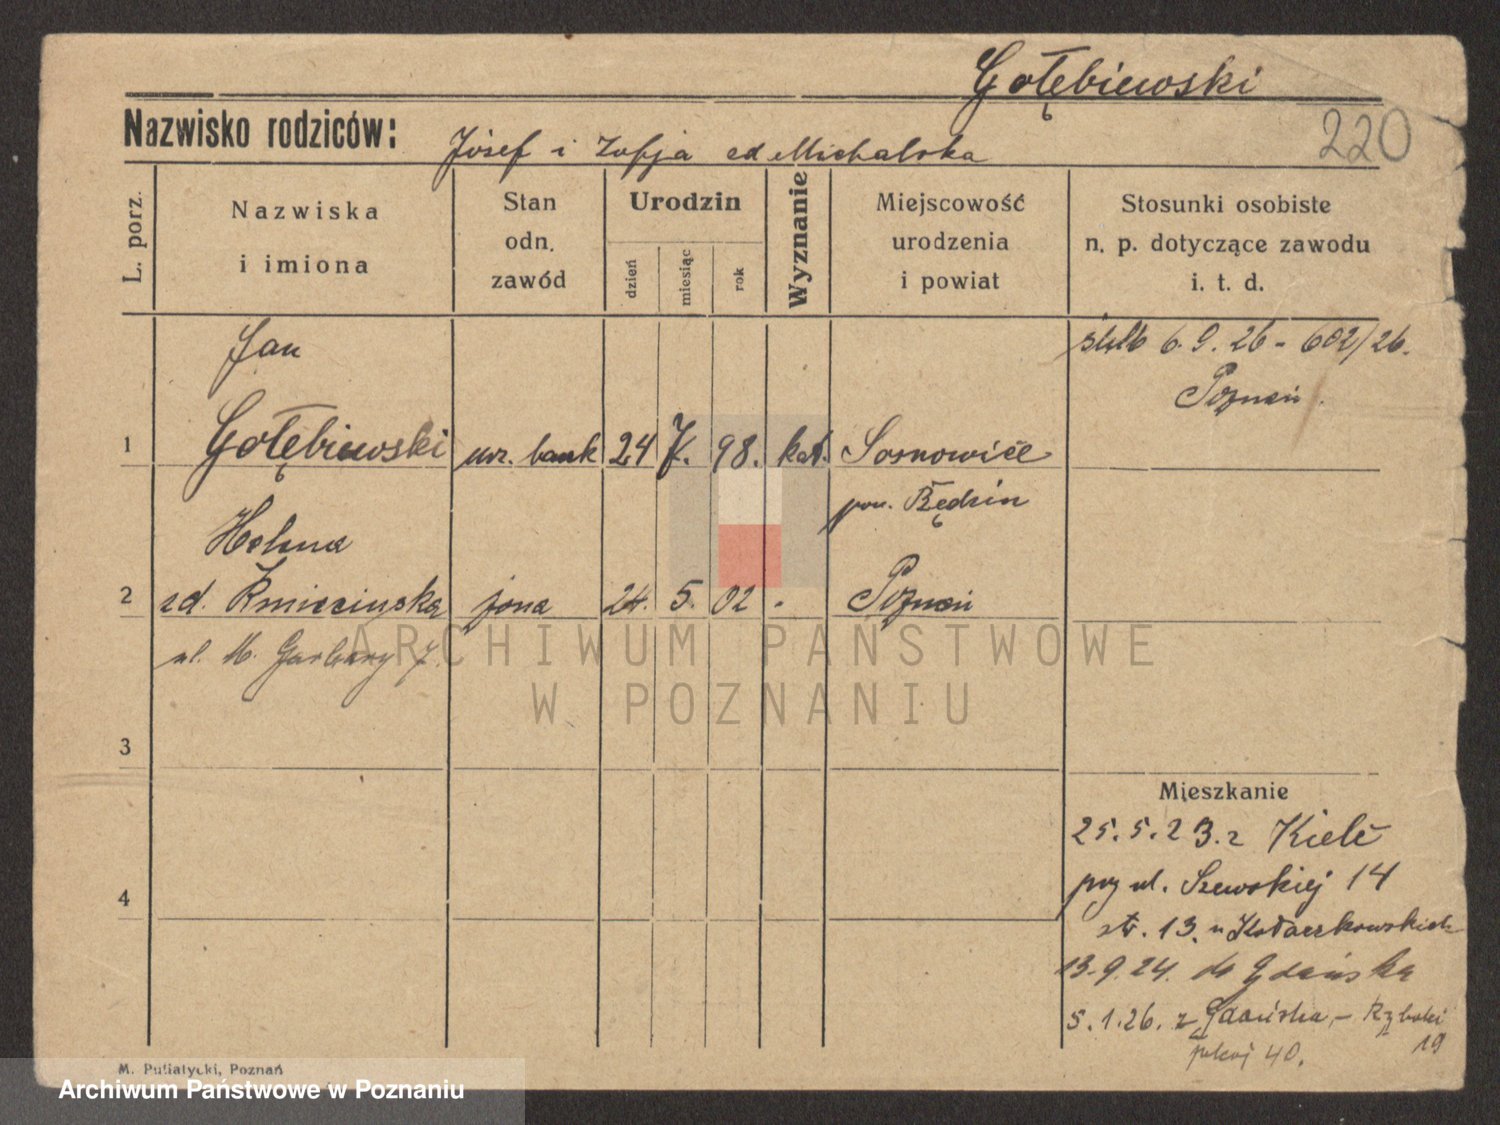 Gołębiewski
Nazwisko rodziców: Józef i Zofja zd Michalska
220
L. porz.
Nazwiska
i imiona
Stan
odn.
zawód
Urodzin
dzień
miesiąc
rok
Wyznanie
Miejscowość
urodzenia
i powiat
Stosunki osobiste
n. p. dotyczące zawodu
i. t. d.
Jan
ślub 6.9.26 - 602/26.
Poznań.
1 Gołębiewski urz. bank 24 7. 98. kat. Sosnowice
pow. Będzin
Helena
2 zd. Kmiecińska żona 24. 5. 02 - Poznań
ul. M. Garbary 7.
ARCHIWUM PAŃSTWOWE
W POZNANIU
3
4
Mieszkanie
25.5.23. z Kielc
przy ul. Szewskiej 14
str. 13. u Kołaczkowskich
13.9.24. do Gdańska
5.1.26. z Gdańska, - Rybaki
19
pokój 40.
M. Putiatycki, Poznań
Archiwum Państwowe w Poznaniu